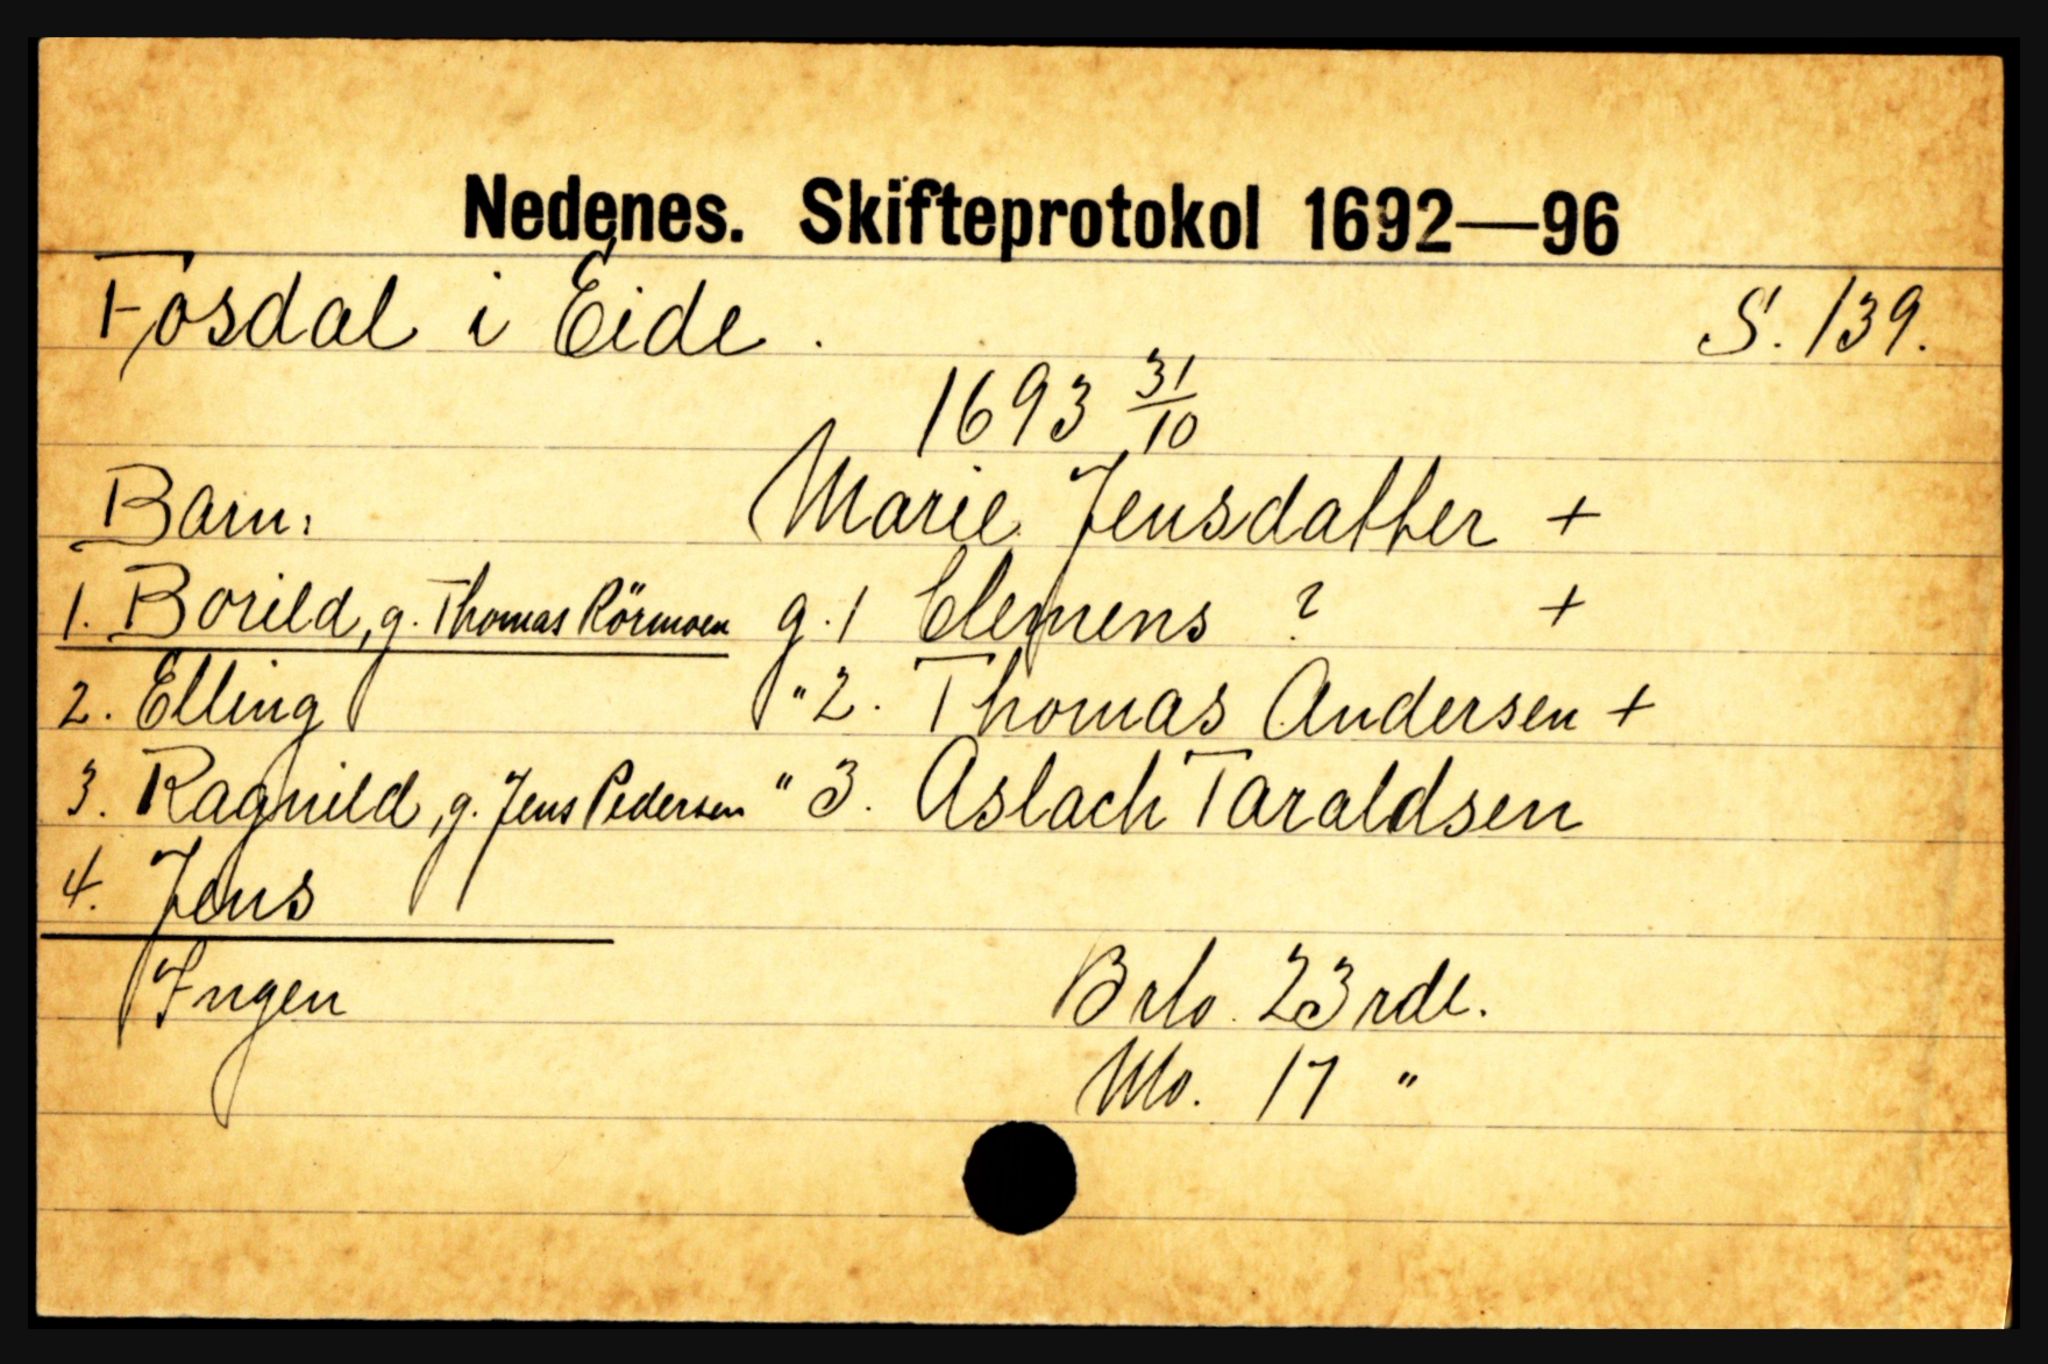 Nedenes. Skifteprotokol 1692—96
Fosdal i Eide. S. 139.
1693 31/10
Barn: Marie Jensdatter +
1. Borild, g. Thomas Rörmoen g. 1 Clemens ? +
2. Elling " 2. Thomas Andersen +
3. Ragnild, g. Jens Pedersen " 3. Aslach Taraldsen
4. Jens
Ingen Brlo. 23 rdl.
Mo. 17 "